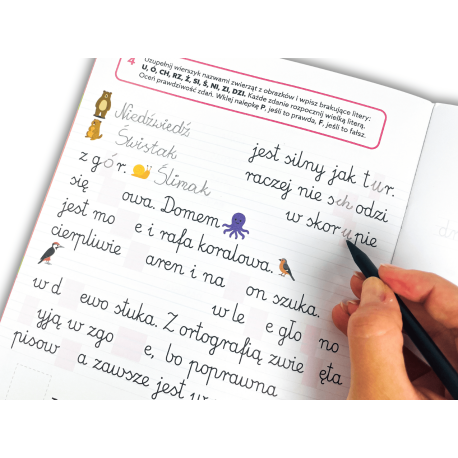 4 Uzupełnij wierszyk nazwami zwierząt z obrazków i wpisz brakujące litery:
U, Ó, CH, RZ, Ż, SI, Ś, NI, ZI, DZI. Każde zdanie rozpocznij wielką literą.
Oceń prawdziwość zdań. Wklej nalepkę P, jeśli to prawda, F, jeśli to fałsz.
Niedźwiedź jest silny jak tur.
Świstak raczej nie schodzi
z gór. Ślimak w skorupnie
się owa. Domem
jest mo e i rafa koralowa.
cierpliwie aren i na on szuka.
w le e gło no
w d ewo stuka. Z ortografią zwie ęta
yją w zgo e, bo poprawna
pisow a zawsze jest w